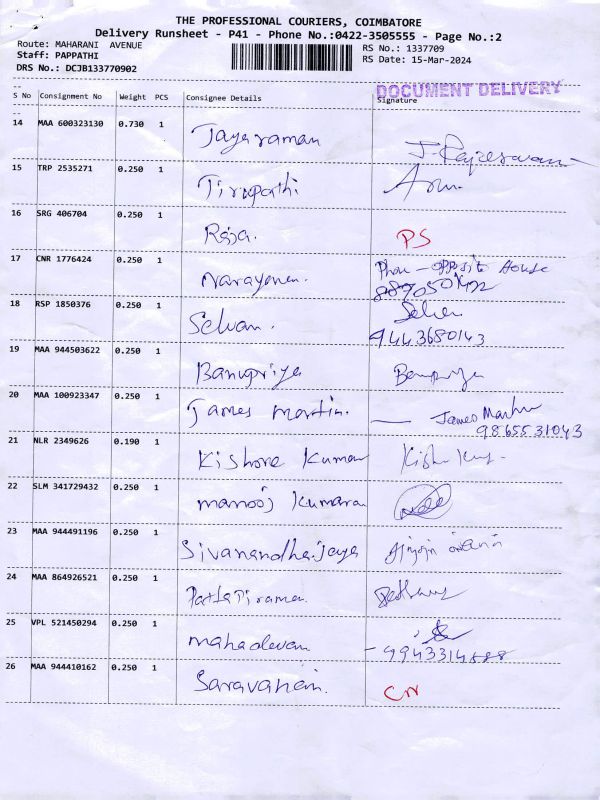 THE PROFESSIONAL COURIERS, COIMBATORE
Delivery Runsheet - P41 - Phone No.:0422-3505555 - Page No.:2
Route: MAHARANI AVENUE RS No.: 1337709
Staff: PAPPATHI RS Date: 15-Mar-2024
DRS No.: DCJB133770902
DOCUMENT DELIVERY
S No Consignment No Weight PCS Consignee Details Signature
14 MAA 600323130 0.730 1 Jayaraman J. Rajeswari
15 TRP 2535271 0.250 1 Tirupathi
16 SRG 406704 0.250 1 Raja. PS
17 CNR 1776424 0.250 1 Narayanan. opposite House
18 RSP 1850376 0.250 1 Selvan.
9443680143
19 MAA 944503622 0.250 1 Banupriya
20 MAA 100923347 0.250 1 James martin. — James Martin
9865531043
21 NLR 2349626 0.190 1 Kishore Kumar
22 SLM 341729432 0.250 1 manooj Kumaran
23 MAA 944491196 0.250 1 Sivanandha.jaya
24 MAA 864926521 0.250 1
25 VPL 521450294 0.250 1 mahadevan
26 MAA 944410162 0.250 1 Saravanan.